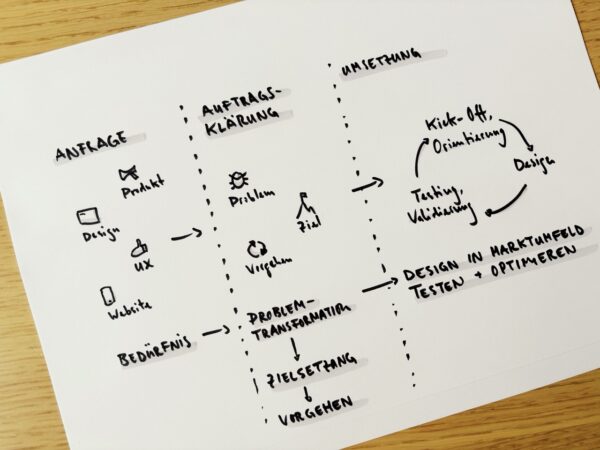 ANFRAGE
Produkt
Design
UX
Website
BEDÜRFNIS
AUFTRAGS-
KLÄRUNG
Problem
Ziel
Vorgehen
PROBLEM-
TRANSFORMATION
ZIELSETZUNG
VORGEHEN
UMSETZUNG
Kick-Off,
Orientierung
Design
Testing,
Validierung
DESIGN IN MARKTUMFELD
TESTEN + OPTIMIEREN